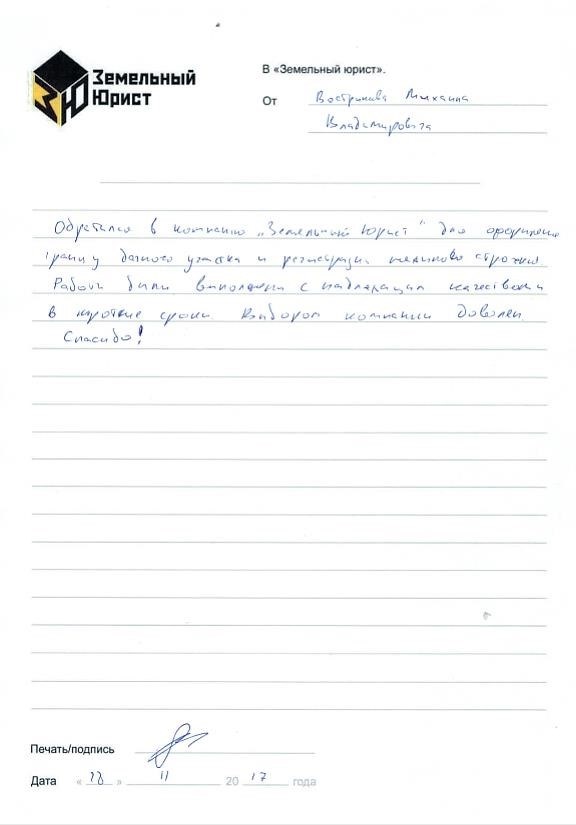 Земельный
Юрист
В «Земельный юрист».
От Вострикова Михаила
Владимировича
Обратился в компанию „Земельный Юрист“ для оформления
границ дачного участка и регистрации жилого строения.
Работы были выполнены с надлежащим качеством и
в короткие сроки. Выбором компании доволен.
Спасибо!
Печать/подпись
Дата « » 11 2017 года